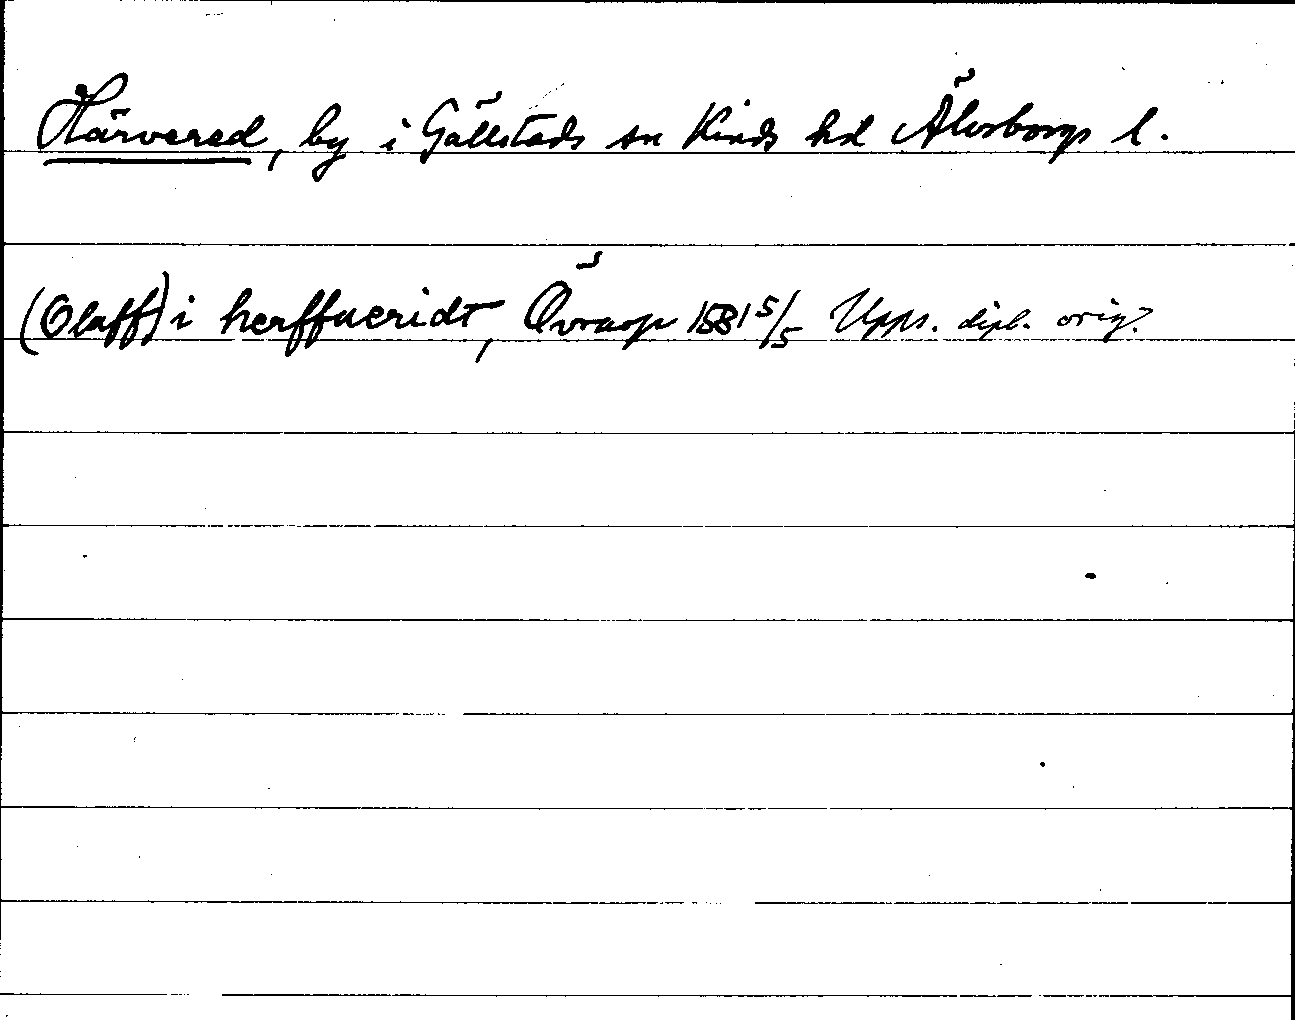 Härvered, by i Gällstads sn Kinds hd Älvsborgs l.
(Olaff) i herffueridt, Övrarp 1581 5/5 Upps. dipl. orig.